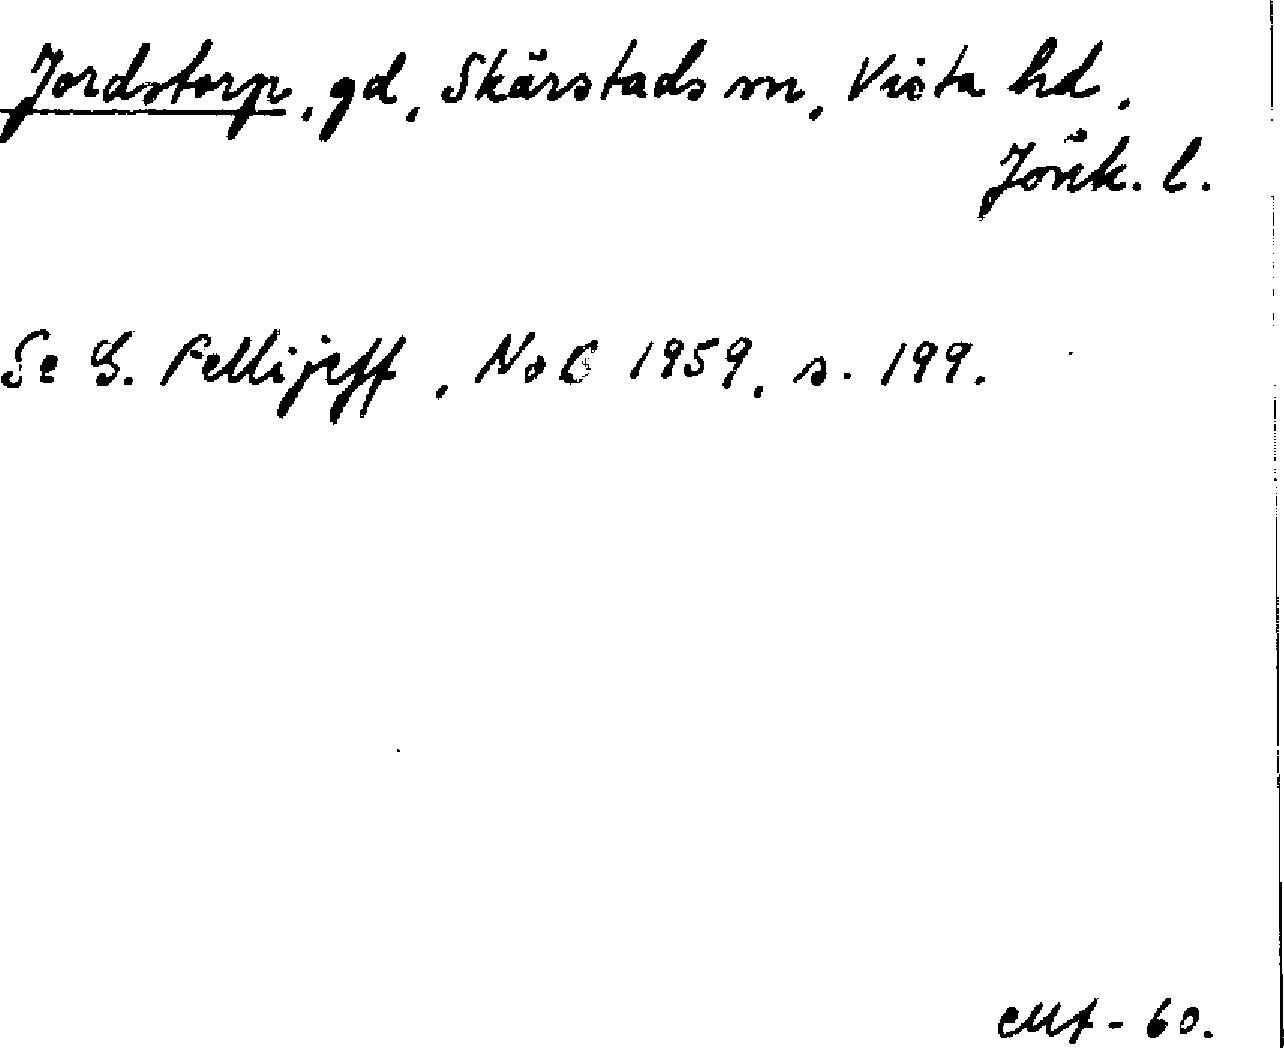 Jordstorp, gd, Skärstads sn, Vista hd,
Jönk. l.
Se G. Fellijeff, NoB 1959, s. 199.
- 60.